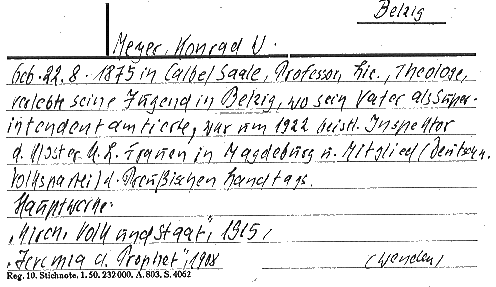 Belzig
Meyer, Konrad W.
Geb. 22.8.1875 in Calbe/Saale, Professor, Lic., Theologe,
verlebte seine Jugend in Belzig, wo sein Vater als Super-
intendent amtierte, war um 1922 geistl. Inspektor
d. Kloster U. L. Frauen in Magdeburg u. Mitglied (Deutsch.
Volkspartei) d. Preußischen Landtags.
Hauptwerke:
„Kirche, Volk und Staat", 1915,
„Jeremia d. Prophet", 1908
(wenden)
Reg. 10. Stichnote. 1. 50. 232000. A. 803. S. 4062